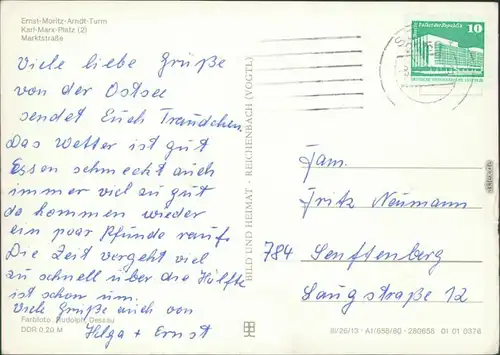 Ernst-Moritz-Arndt-Turm
Karl-Marx-Platz (2)
Marktstraße
Viele liebe Grüße
von der Ostsee
sendet Euch Traudchen.
Das Wetter ist gut
Essen schmeckt auch
immer viel zu gut
da kommen wieder
ein paar Pfunde rauf.
Die Zeit vergeht viel
zu schnell über die Hälfte
ist schon um.
Viele Grüße auch von
Helga + Ernst
Farbfoto: Rudolph, Dessau
DDR 0,20 M
BILD UND HEIMAT · REICHENBACH (VOGTL)
III/26/13 · A1/656/80 · 280658 01 01 0376
Palast der Republik
10
Fam.
Fritz Neumann
784 Senftenberg
Langstraße 12